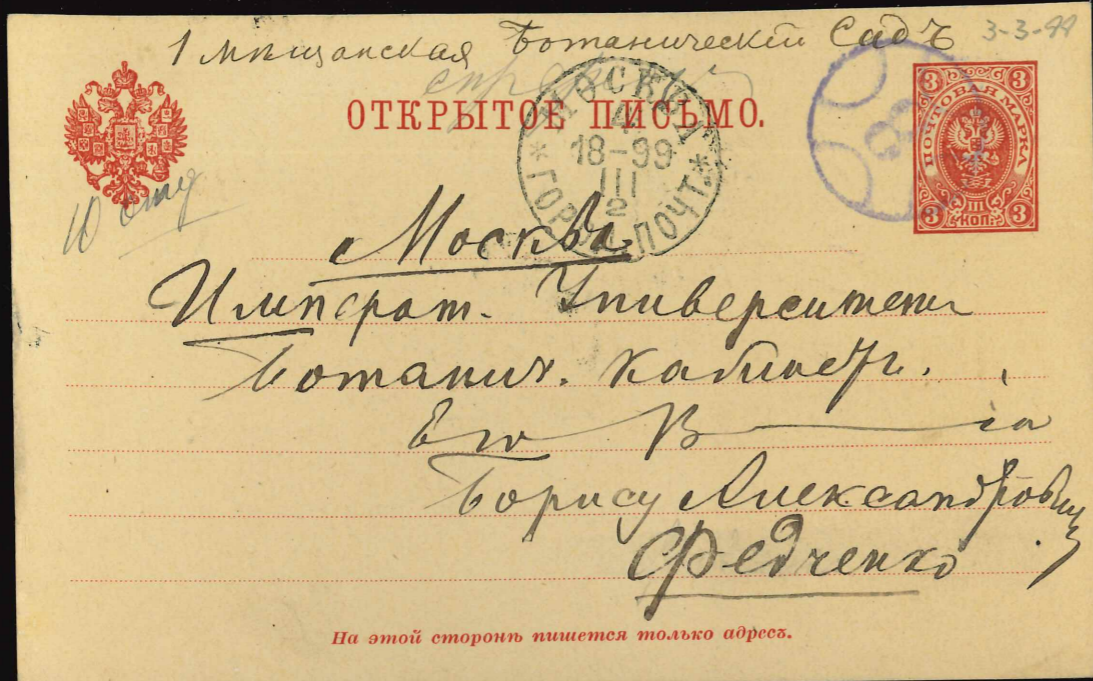 1 Мѣщанская Ботаническій Садъ 3-3-99
ОТКРЫТОЕ ПИСЬМО.
МОСКВА
4
18-99
III
2
ГОРОД. ПОЧТ.
ПОЧТОВАЯ МАРКА
3 3
3 3
III
КОП.
10
Москва.
Императ. Университетъ
Ботанич. Кабинетъ.
Его В — ію
Борису Александровичу
Федченко
На этой сторонѣ пишется только адресъ.